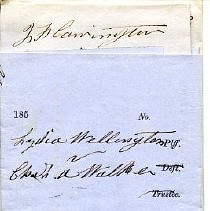 J. H. Carrington
185 No.
Lydia Wellington Pl'ff.
v
Cha's A Walker Deft.
Trustee.